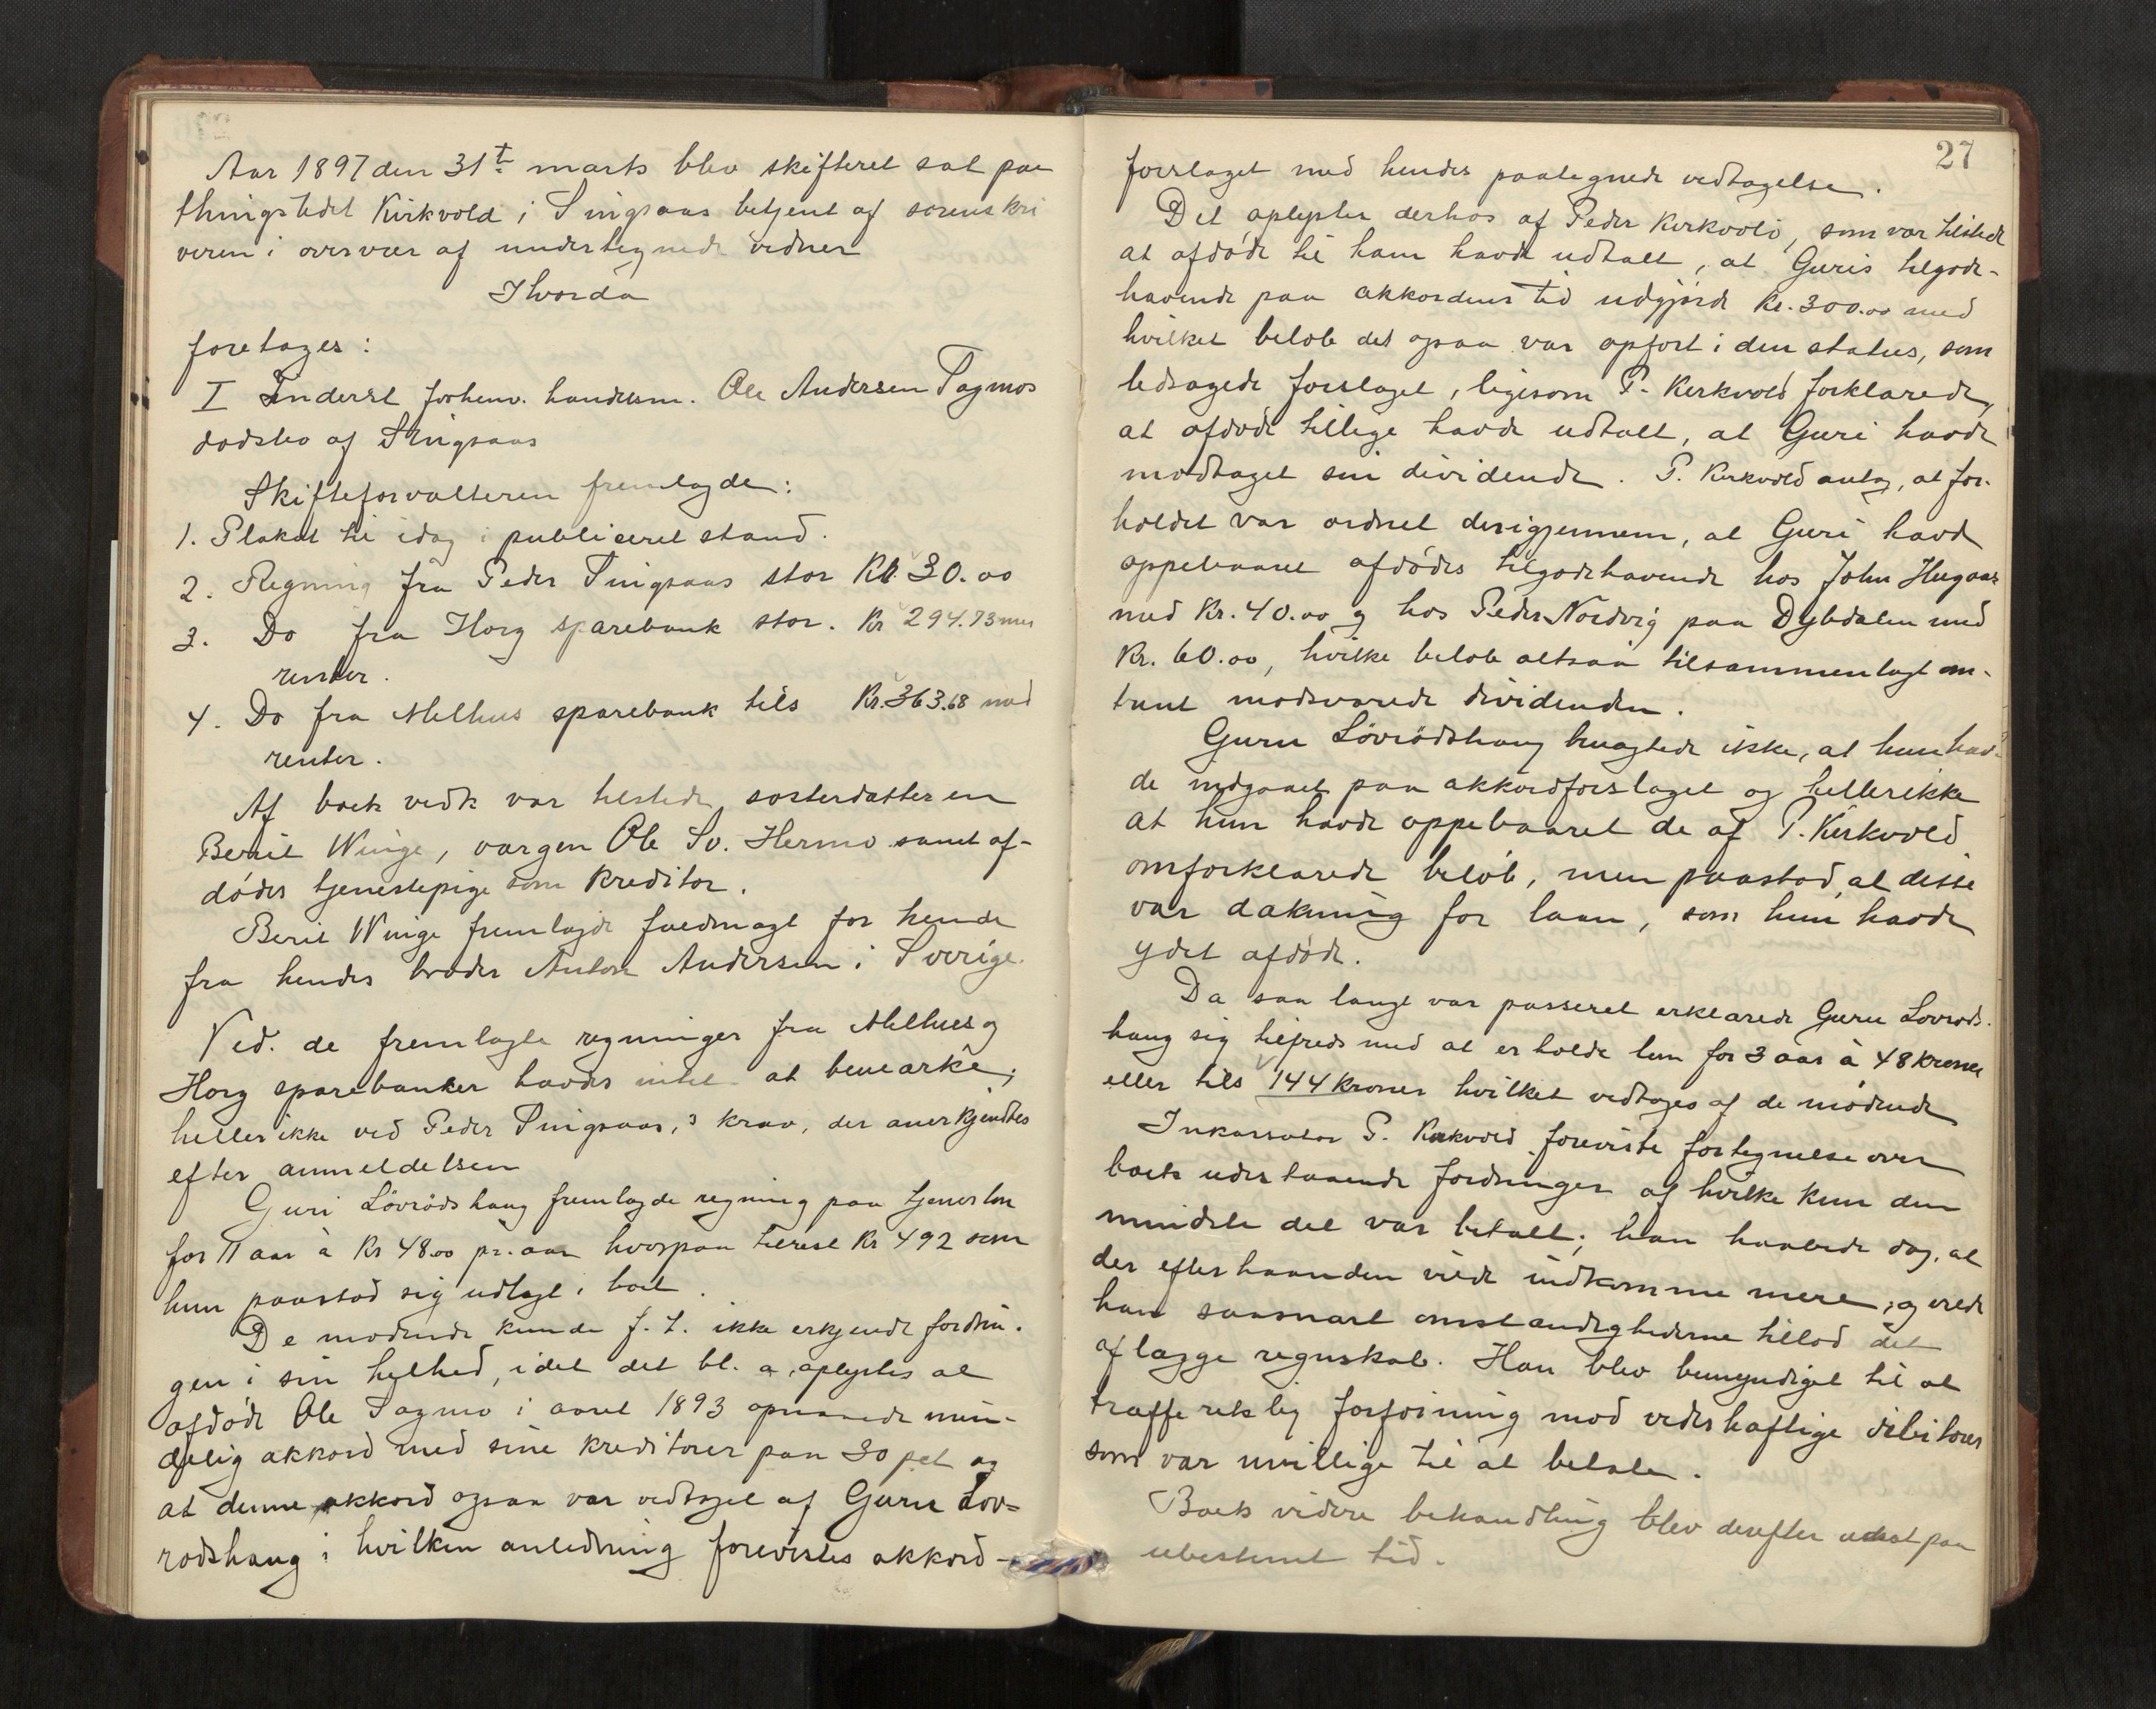 Aar 1897 den 31t marts blev skifteret sat paa
thingstedet Kirkvold i Singsaas betjent af sorenskri
veren i overvær af undertegnede vidner
Hvorda
foretages:
I Inderst forhenv. handelsm. Ole Andersen Tagmos
dødsbo af Singsaas
Skifteforvalteren fremlagde:
1. Plakat til idag i publiceret stand.
2. Regning fra Peder Singsaas stor Kr. 30.00
3. Do fra Horg sparebank stor. Kr 294.73 med
renter.
4. Do fra Melhus sparebank tils Kr. 363.68 med
renter.
Af boets vedk var tilstede søsterdatteren
Berit Winge, værgen Ole Sv. Hermo samt af-
dødes tjenestepige som kreditor.
Berit Winge fremlagde fuldmagt for hende
fra hendes broder Anton Andersen i Sverige.
Ved. de fremlagte regninger fra Melhus og
Horg sparebanker havdes intet at bemærke;
heller ikke ved Peder Singsaas,s krav, der anerkjendtes
efter anmeldelsen
Guri Lövrödshaug fremlagde regning paa tjenerløn
for 11 aar à Kr 48.00 pr. aar hvorpaa tilrest Kr 492 som
hun paastod sig udlagt i boet.
De mødende kunde f. t. ikke erkjende fordrin-
gen i sin helhed, idet det bl. a. oplystes at
afdöde Ole Tagmo i aaret 1893 opnaaede min-
delig akkord med sine kreditorer paa 30 pct og
at denne akkord ogsaa var vedtaget af Guru Lov-
rodshaug i hvilken anledning forevistes akkord-
27
forslaget med hendes paategnede vedtagelse.
Det oplystes derhos af Peder Kirkvold, som var tilstede
at afdöde til ham havde udtalt, at Guris tilgode-
havende paa akkordens tid udgjorde Kr. 300.00 med
hvilket beløb det ogsaa var opført i den status, som
ledsagede forslaget, ligesom P. Kirkvold forklarede,
at afdöde tillige havde udtalt, at Guri havde
modtaget sin dividende. P. Kirkvold antog, at for-
holdet var ordnet derigjennem, at Guri havde
oppebaaret afdödes tilgodehavende hos John Haugaas
med Kr. 40.00 og hos Peder Nordvig paa Dybdalen med
Kr. 60.00, hvilke beløb altsaa tilsammenlagt om-
trent modsvarede dividenden.
Guru Lövrödshaug benægtede ikke, at hun hav-
de indgaaet paa akkordforslaget og heller ikke
at hun havde oppebaaret de af P. Kirkvold
omforklarede belöb, men paastod, at disse
var dækning for laan, som hun havde
ydet afdöde.
Da saa langt var passeret erklærede Guru Lovrods-
haug sig tilfreds med at erholde løn for 3 aar à 48 kroner
eller tils 144 kroner hvilket vedtoges af de mødende
Inkassator P. Kirkvold foreviste fortegnelse over
boets udestaaende fordringer af hvilke kun den
mindste del var betalt; han haabede dog, at
der efterhaanden vilde indkomme mere, og vilde
han saasnart omstændighederne tillod det
aflægge regnskab. Han blev bemyndiget til at
træffe retslig forføining mod vederhæftige debitorer
som var uvillige til at betale.
Boets videre behandling blev derefter udsat paa
ubestemt tid.